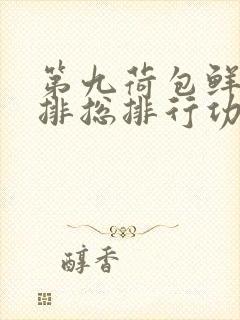 第九荷包鲜
排总排行功
醇香